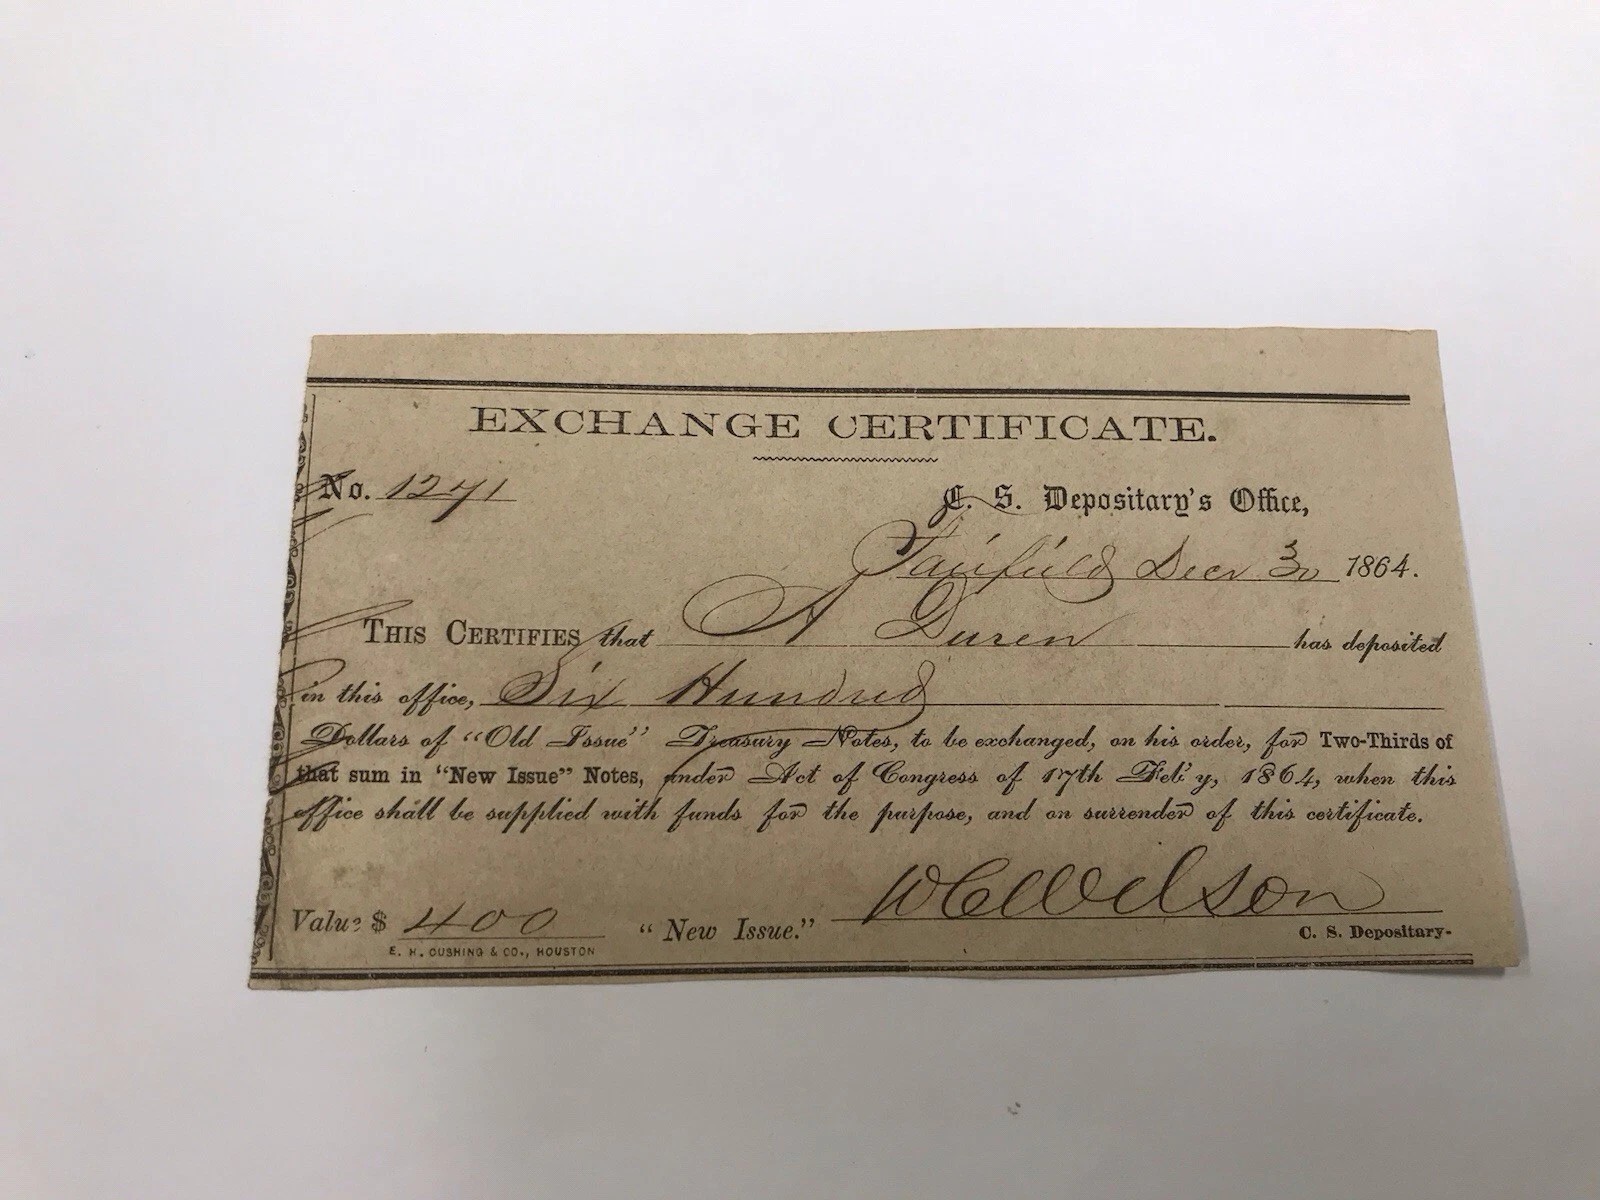 EXCHANGE CERTIFICATE.
No. 1271
C. S. Depositary's Office,
Fairfield Decr 30 1864.
THIS CERTIFIES that A Duren has deposited
in this office, Six Hundred
Dollars of "Old Issue" Treasury Notes, to be exchanged, on his order, for Two-Thirds of
that sum in "New Issue" Notes, under Act of Congress of 17th Feb'y, 1864, when this
office shall be supplied with funds for the purpose, and on surrender of this certificate.
W C Wilson
Value $ 400 "New Issue."
C. S. Depositary.
E. H. CUSHING & CO., HOUSTON